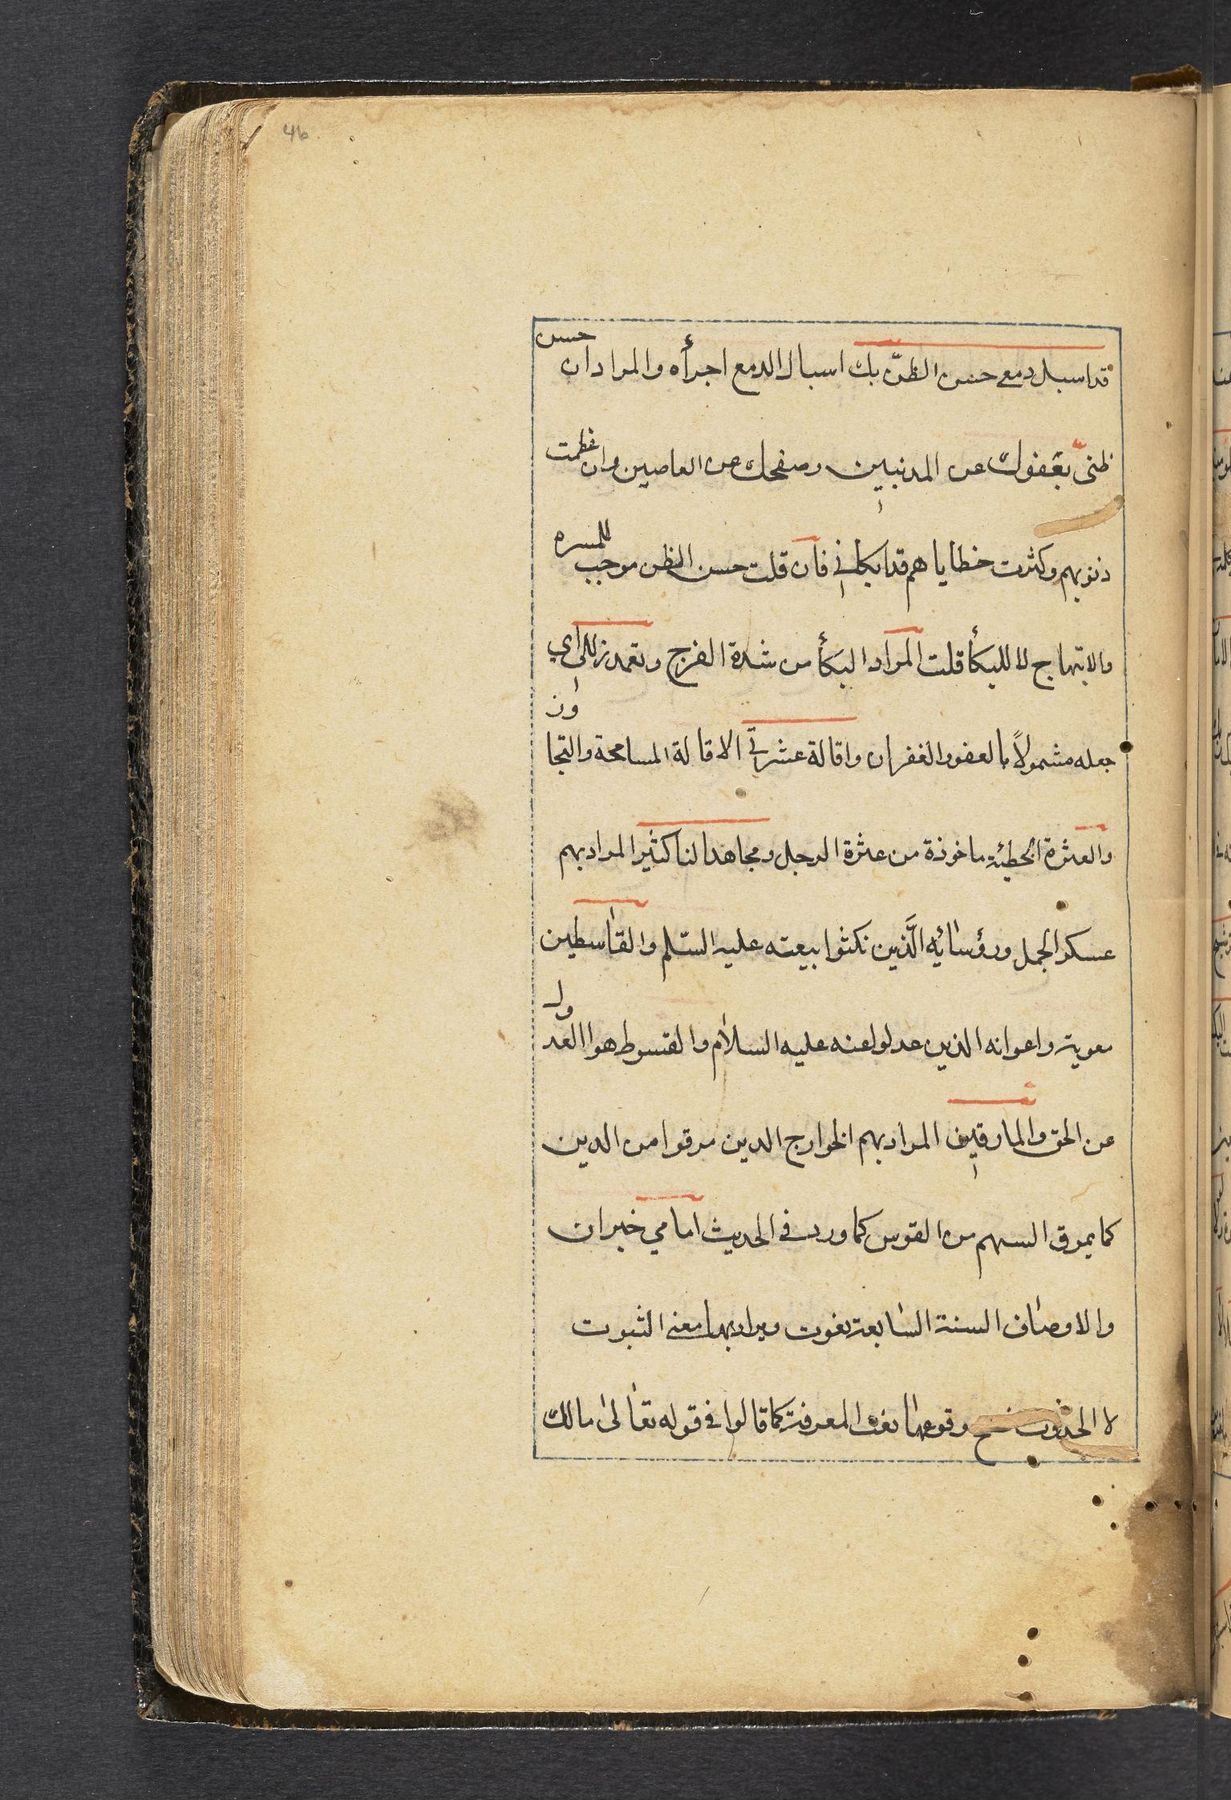 46
قد اسبل دمعي حسن الظنّ بك اسبال الدمع اجرأه والمراد ان حسن
ظنى بعفوك عن المدنبين وصفحك عن العاصين وان عظمت
ذنوبهم وكثرت خطاياهم قد ابكانى فان قلت حسن الظن موجب للمسره
والابتهاج لا للبكأ قلت المراد البكأ من شدة الفرح وتغمد زللى اي
جعله مشمولاً بالعفو والغفران واقالة عثرتي الاقالة المسامحة والتجاوز
والعثرة الخطيئة ماخوذة من عثرة الرجل ومجاهدا لناكثين المراد بهم
عسكر الجمل ورؤسائه الَّذين نكثوا بيعته عليه السّلم والقاسطين
معوية واعوانه الذين عدلوا عنه عليه السلام والقسوط هو االعدول
عن الحق والمارقين المراد بهم الخوارج الدين مرقوا من الدين
كما يمرق السهم من القوس كما ورد فى الحديث امامي خبران
والاوصاف السنة السابعة يغوت ويراد بها معنى الثبوت
لا الحدوث وقوعها نغت المعرفة كما قالوا فى قوله تعالى مالك